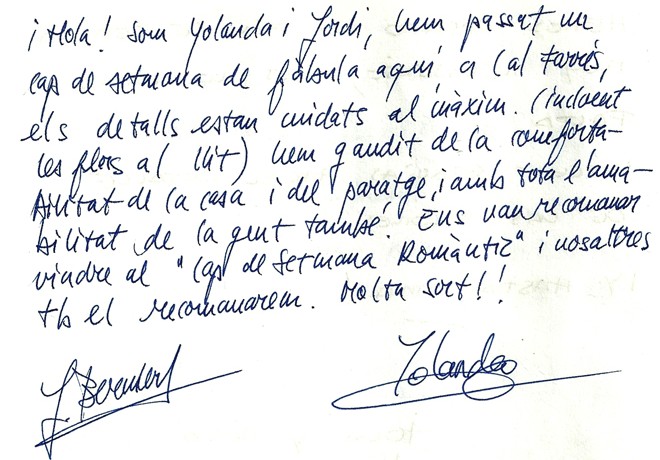 ¡Hola! Som Yolanda i Jordi, hem passat un
cap de setmana de fàbula aquí a Cal Farrés,
els detalls estan cuidats al màxim. (incloent
les flors al llit) hem gaudit de la comforta-
bilitat de la casa i del paratge, i amb tota l'ama-
bilitat de la gent també. Ens van recomanar
vindre al "Cap de Setmana Romàntic" i nosaltres
tb el recomanarem. Molta sort!!
Yolanda